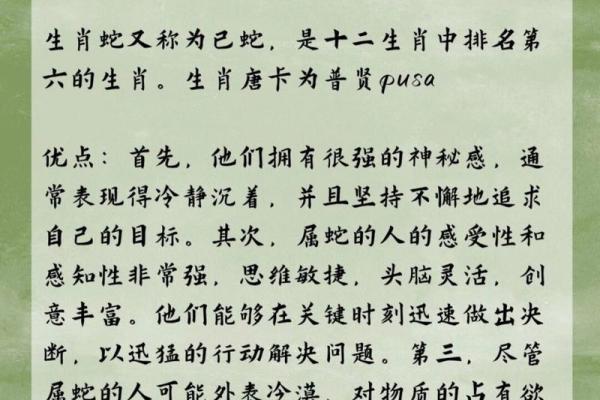 生肖蛇又称为己蛇，是十二生肖中排名第
六的生肖。生肖唐卡为普贤pusa
优点：首先，他们拥有很强的神秘感，通
常表现得冷静沉着，并且坚持不懈地追求
自己的目标。其次，属蛇的人的感受性和
感知性非常强，思维敏捷，头脑灵活，创
意丰富。他们能够在关键时刻迅速做出决
断，以迅猛的行动解决问题。第三，尽管
属蛇的人可能外表冷漠，对物质的占有欲